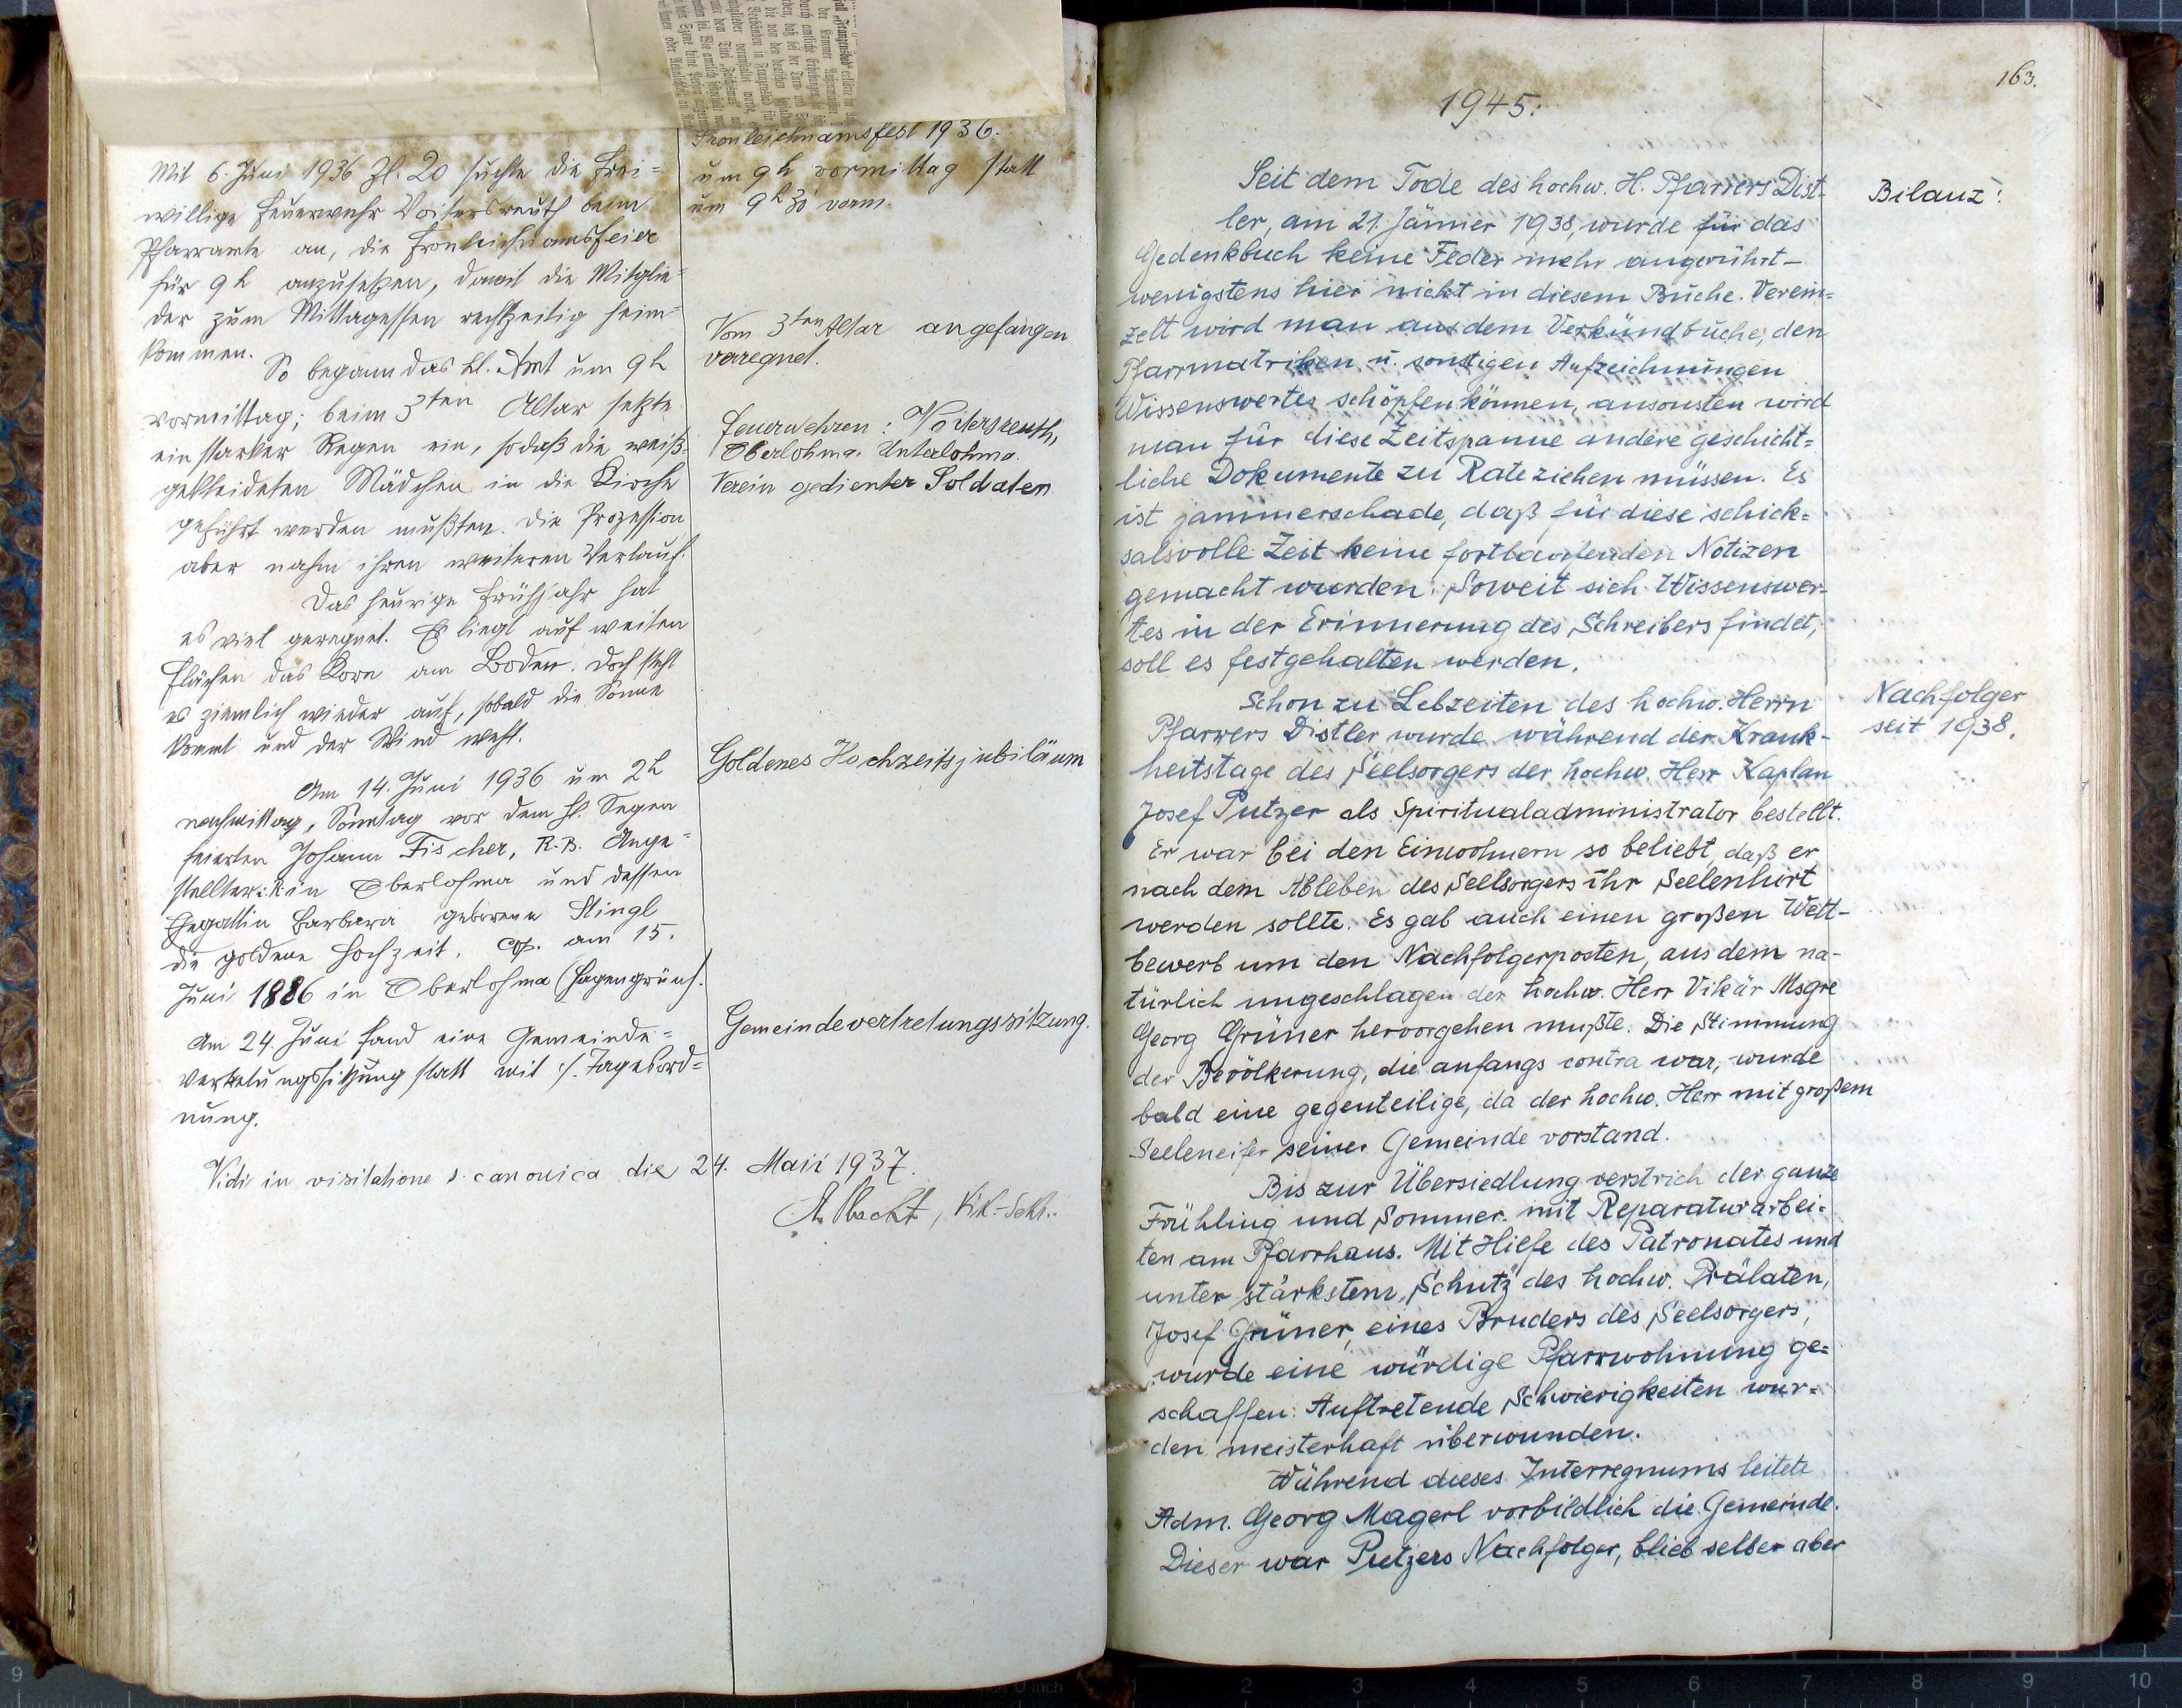 Fronleichnamsfest 1936.
um 9h vormittag statt
um 9h 30 vorm.
Mit 6. Juni 1936 Zl. 20 suchte die Frei=
willige Feuerwehr Voitersreuth beim
Pfarramte an, die Fronleichnamsfeier
für 9h anzusetzen, damit die Mitglie=
der zum Mittagessen rechtzeitig heim=
kommen.
So begann das hl. Amt um 9h
vormittag; beim 3ten Altar setzte
ein starker Regen ein, sodaß die weiß=
gekleideten Mädchen in die Kirche
geführt werden mußten. Die Prozession
aber nahm ihren weiteren Verlauf.
Vom 3ten Altar angefangen
verregnet.
Feuerwehren: Voitersreuth,
Oberlohma, Unterlohma.
Verein gedienter Soldaten
Das heurige Frühjahr hat
es viel geregnet. Es liegt auf weiten
Flächen das Korn am Boden. Doch steht
es ziemlich wieder auf, sobald die Sonne
kommt und der Wind weht.
Am 14. Juni 1936 um 2h
nachmittag, Sonntag vor dem hl. Segen
feierten Johann Fischer, Ange=
stellter in Oberlohma und dessen
Ehegattin Barbara geborene Stingl
die goldene Hochzeit. Cop. am 15.
Juni 1886 in Oberlohma (Hagengrün).
Goldenes Hochzeitsjubiläum
Am 24. Juni fand eine Gemeinde=
vertretungssitzung statt mit :/. Tagesord=
nung.
Gemeindevertretungssitzung.
Vidi in visitatione s. canonica die 24. Maii 1937.
163.
1945:
Seit dem Tode des hochw. H. Pfarrers Dist-
ler, am 21. Jänner 1938, wurde für das
Gedenkbuch keine Feder mehr angerührt –
wenigstens hier nicht in diesem Buche. Verein=
zelt wird man aus dem Verkündbuche, den
Pfarrmatriken u. sonstigen Aufzeichnungen
Wissenswertes schöpfen können, ansonsten wird
man für diese Zeitspanne andere geschicht=
liche Dokumente zu Rate ziehen müssen. Es
ist jammerschade, daß für diese schick=
salsvolle Zeit keine fortlaufenden Notizen
gemacht wurden. Soweit sich Wissenswer-
tes in der Erinnerung des Schreibers findet,
soll es festgehalten werden.
Bilanz:
Schon zu Lebzeiten des hochw. Herrn
Pfarrers Distler wurde während der Krank-
heitstage des Seelsorgers der hochw. Herr Kaplan
Josef Putzer als Spiritualadministrator bestellt.
Er war bei den Einwohnern so beliebt, daß er
nach dem Ableben des Seelsorgers ihr Seelenhirt
werden sollte. Es gab auch einen großen Wett-
bewerb um den Nachfolgerposten, aus dem na-
türlich ungeschlagen der hochw. Herr Vikär Msgre
Georg Grüner hervorgehen mußte. Die Stimmung
der Bevölkerung, die anfangs contra war, wurde
bald eine gegenteilige, da der hochw. Herr mit großem
Seeleneifer seiner Gemeinde vorstand.
Nachfolger
seit 1938.
Bis zur Übersiedlung verstrich der ganze
Frühling und Sommer mit Reparaturarbei=
ten am Pfarrhaus. Mit Hilfe des Patronates und
unter stärkstem Schutz des hochw. Prälaten,
Josef Grüner, eines Bruders des Seelsorgers,
wurde eine würdige Pfarrwohnung ge=
schaffen. Auftretende Schwierigkeiten wur=
den meisterhaft überwunden.
Während dieses Interregnums leitete
Adm. Georg Magerl vorbildlich die Gemeinde.
Dieser war Putzers Nachfolger, blieb selber aber